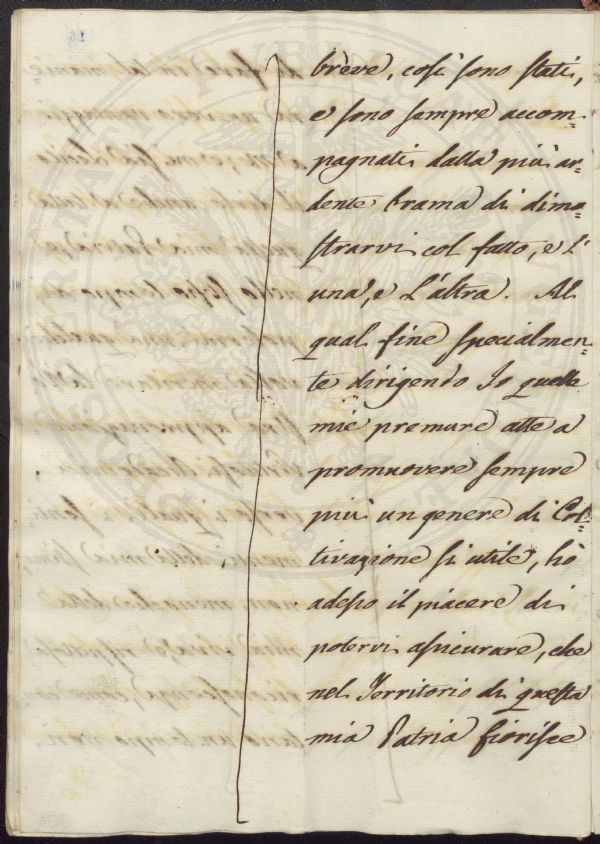 breve, così sono stati,
e sono sempre accom=
pagnati dalla più ar=
dente brama di dimo=
strarvi col fatto, e l'
una, e l'altra. Al
qual fine specialmen=
te dirigendo Io quelle
mie premure atte a
promuovere sempre
più un genere di Col=
tivazione si utile, hò
adesso il piacere di
potervi assicurare, che
nel Territorio di questa
mia Patria fiorisce